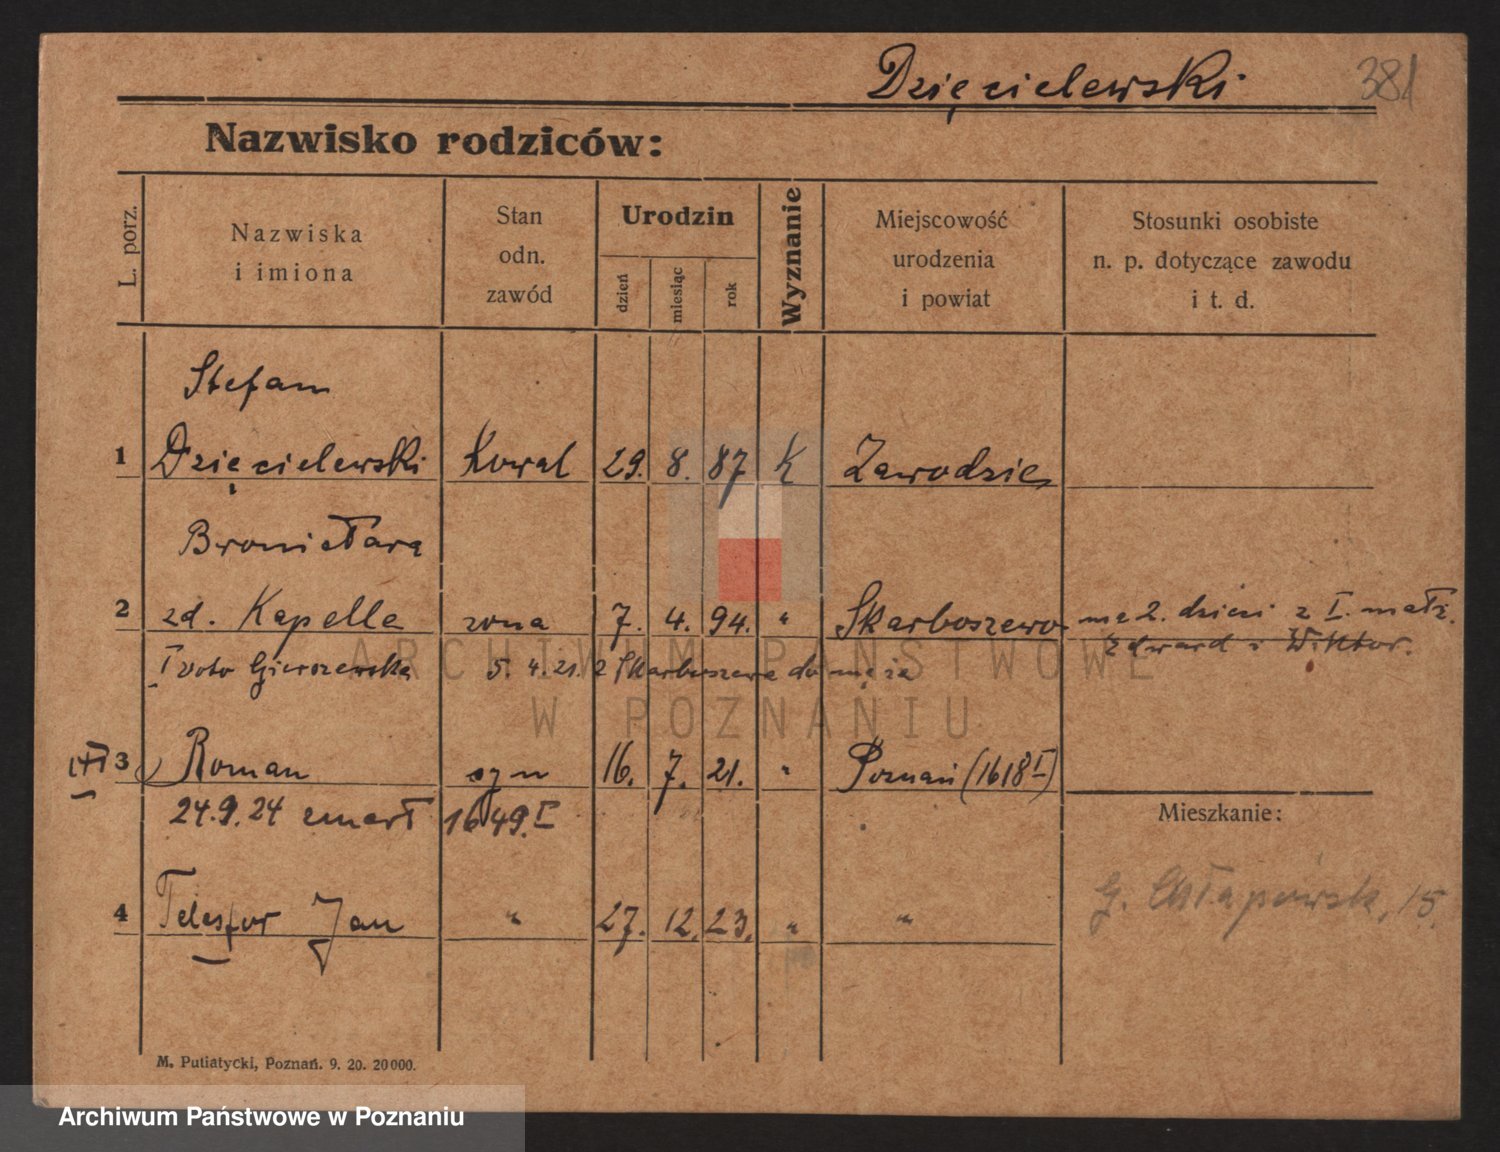 Dzięcielewski 381
Nazwisko rodziców:
L. porz.
Nazwiska
i imiona
Stan
odn.
zawód
Urodzin
dzień
miesiąc
rok
Wyznanie
Miejscowość
urodzenia
i powiat
Stosunki osobiste
n. p. dotyczące zawodu
i t. d.
Stefan
1 Dzięcielewski Kowal 29. 8. 87 K Zawodzie
2 zd. Kapella żona 7. 4. 94. " Skarboszewo ma 2. dzieci z I. małż.
Edward i Wiktor.
I voto Gierszewska 5. 4. 21. z Skarboszewa do męża
3 Roman syn 16. 7. 21. " Poznań (1618 I)
24.9.24 zmarł 1649. I
Mieszkanie:
4 Telesfor Jan " 27. 12. 23. " "
15.
M. Putiatycki, Poznań. 9. 20. 20000.
ARCHIWUM PAŃSTWOWE
W POZNANIU
Archiwum Państwowe w Poznaniu